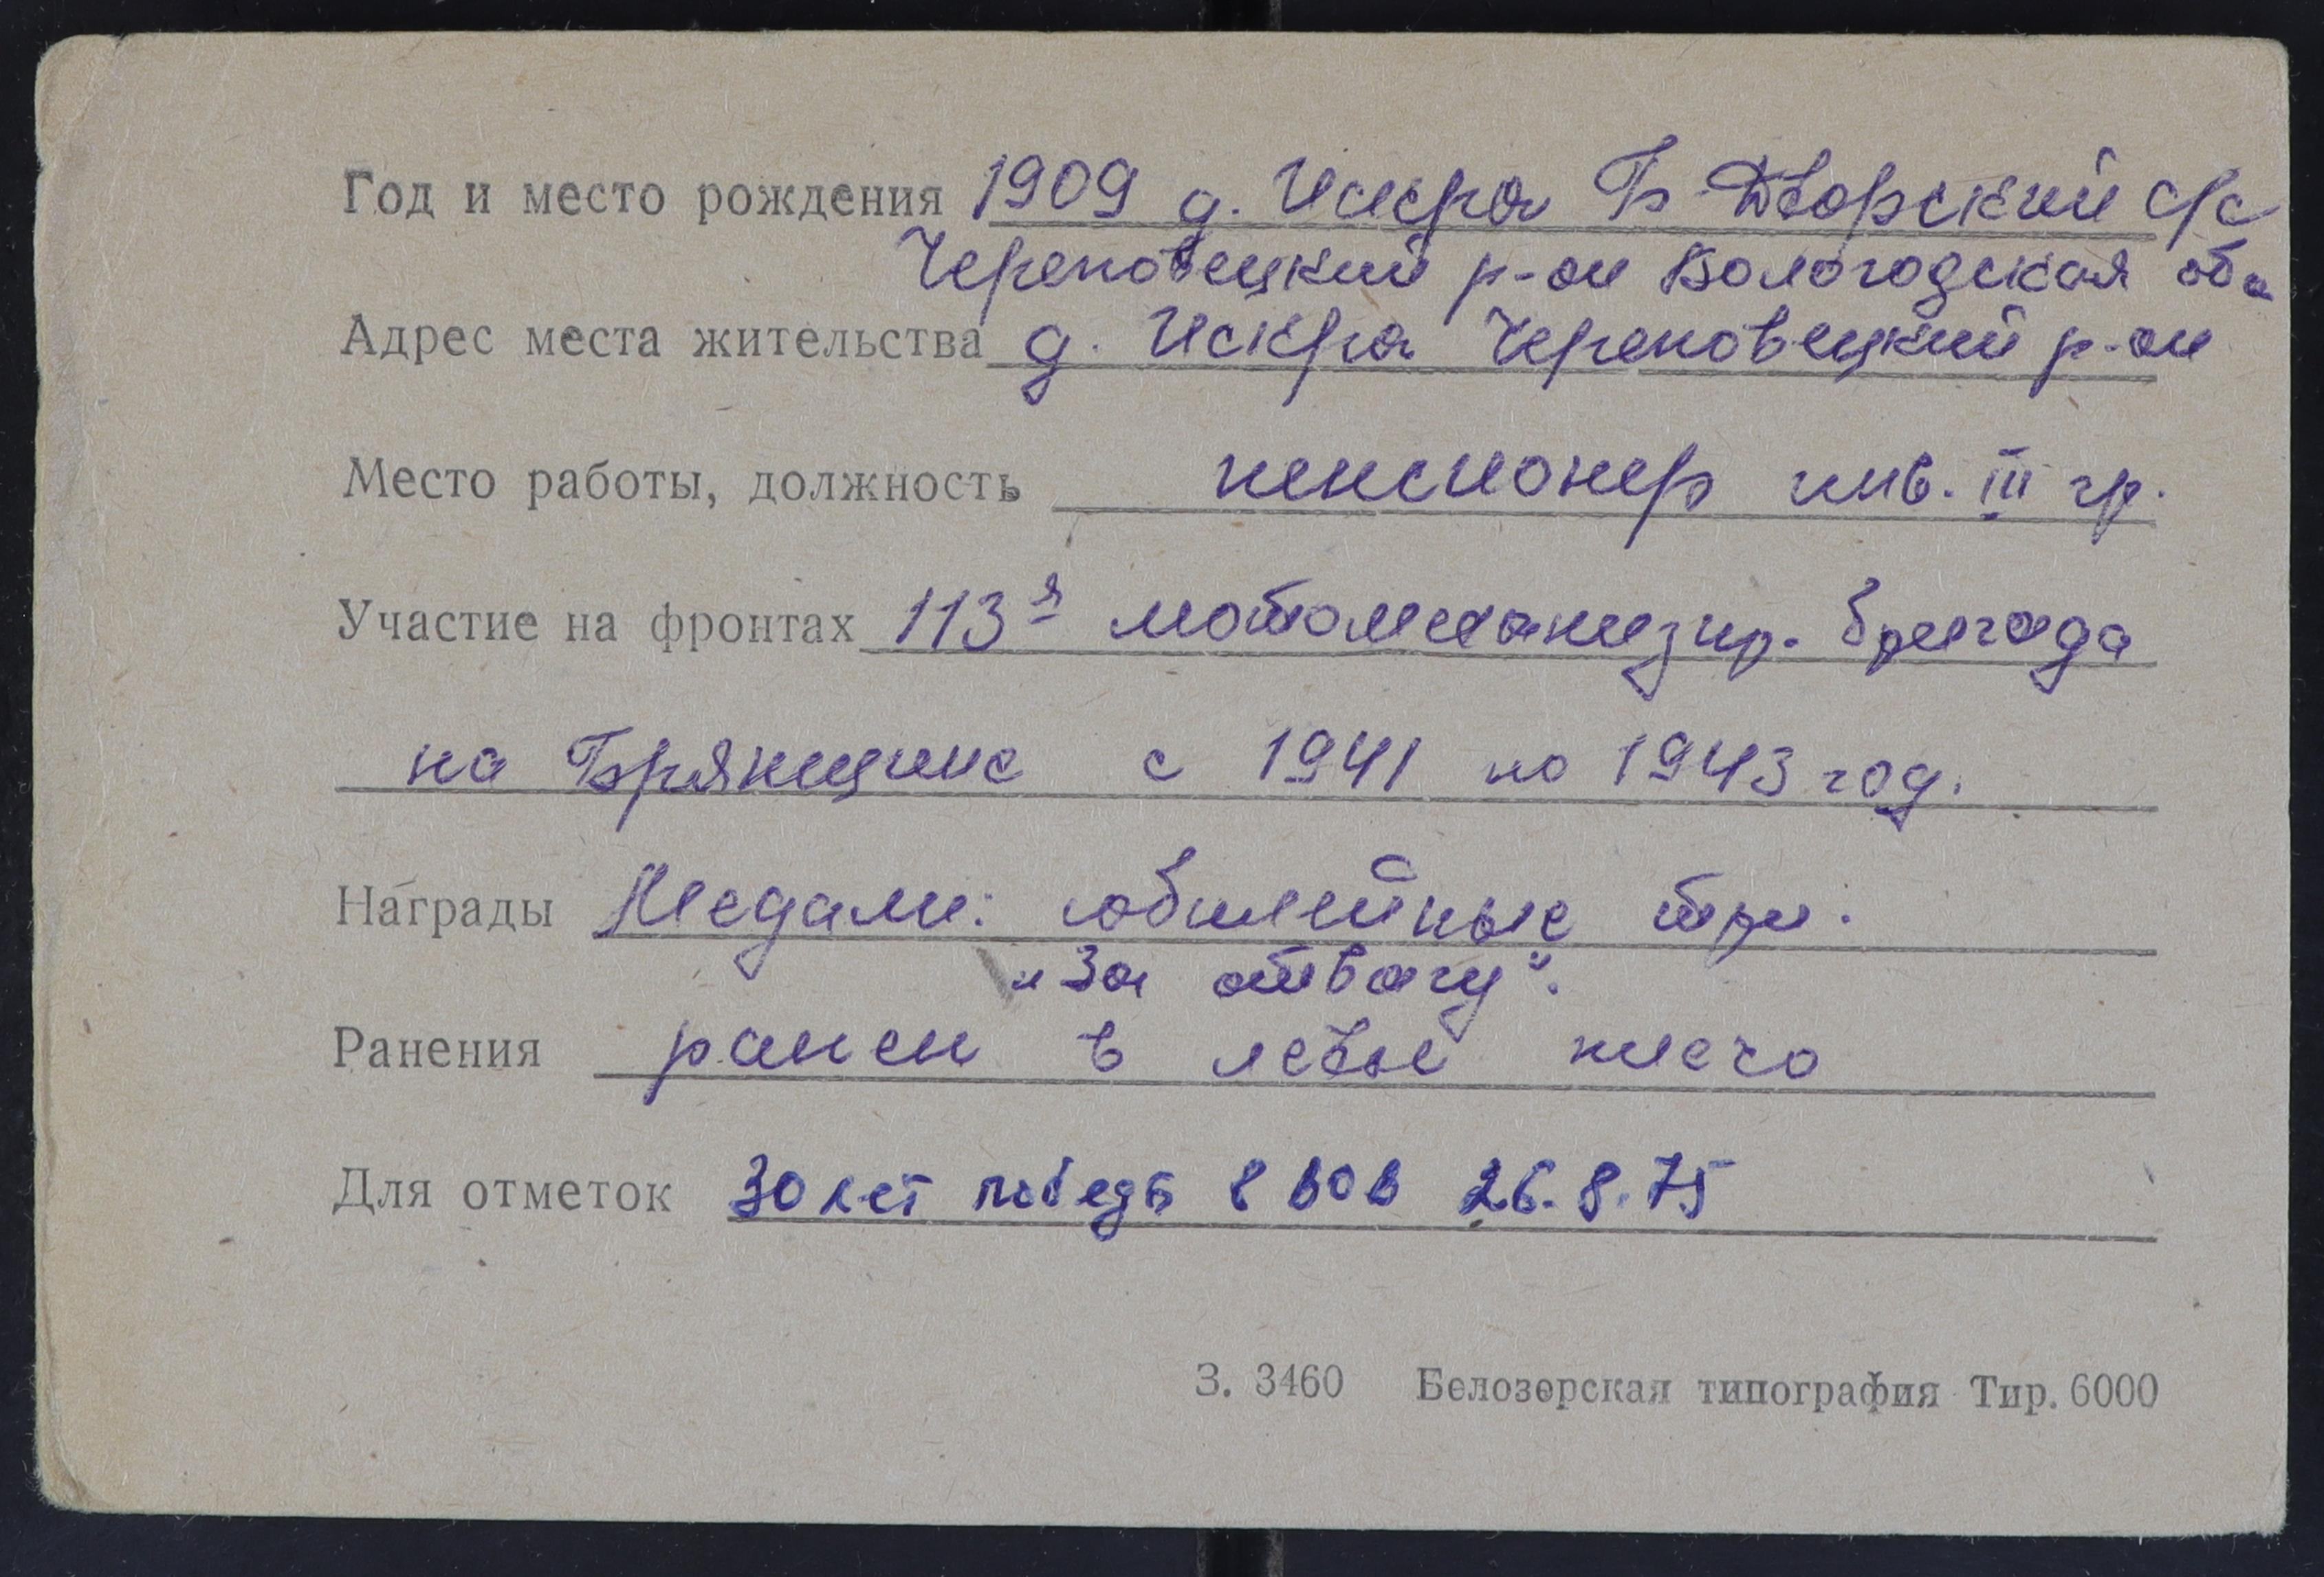 Год и место рождения 1909 д. Искра Б-Дворский с/с
Череповецкий р-он Вологодская об
Адрес места жительства д. Искра Череповецкий р-он
Место работы, должность пенсионер инв. III гр.
Участие на фронтах 113я мотомеханизир. бригада
на Брянщине с 1941 по 1943 год.
Награды Медали: юбилейные три.
"За отвагу".
Ранения ранен в левое плечо
Для отметок 30 лет победы в ВОВ 26.8.75
З. 3460 Белозерская типография Тир. 6000